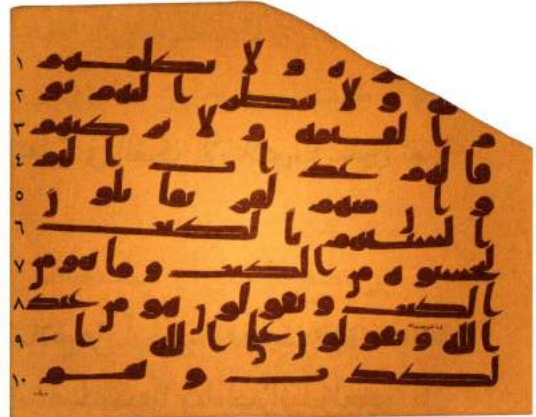 ه و لا يكلمهم ١
الله و لا ينظر اليهم يو ٢
م القيمة و لا يزكيهم ٣
و لهم عذاب اليم ٤
و ان منهم لفريقا يلون ٥
السنتهم بالكتب ٦
لتحسبوه من الكتب و ما هو من ٧
الكتب و يقولون هو من عند ٨
الله و يقولون على الله ا ٩
لكذب و هم ١٠